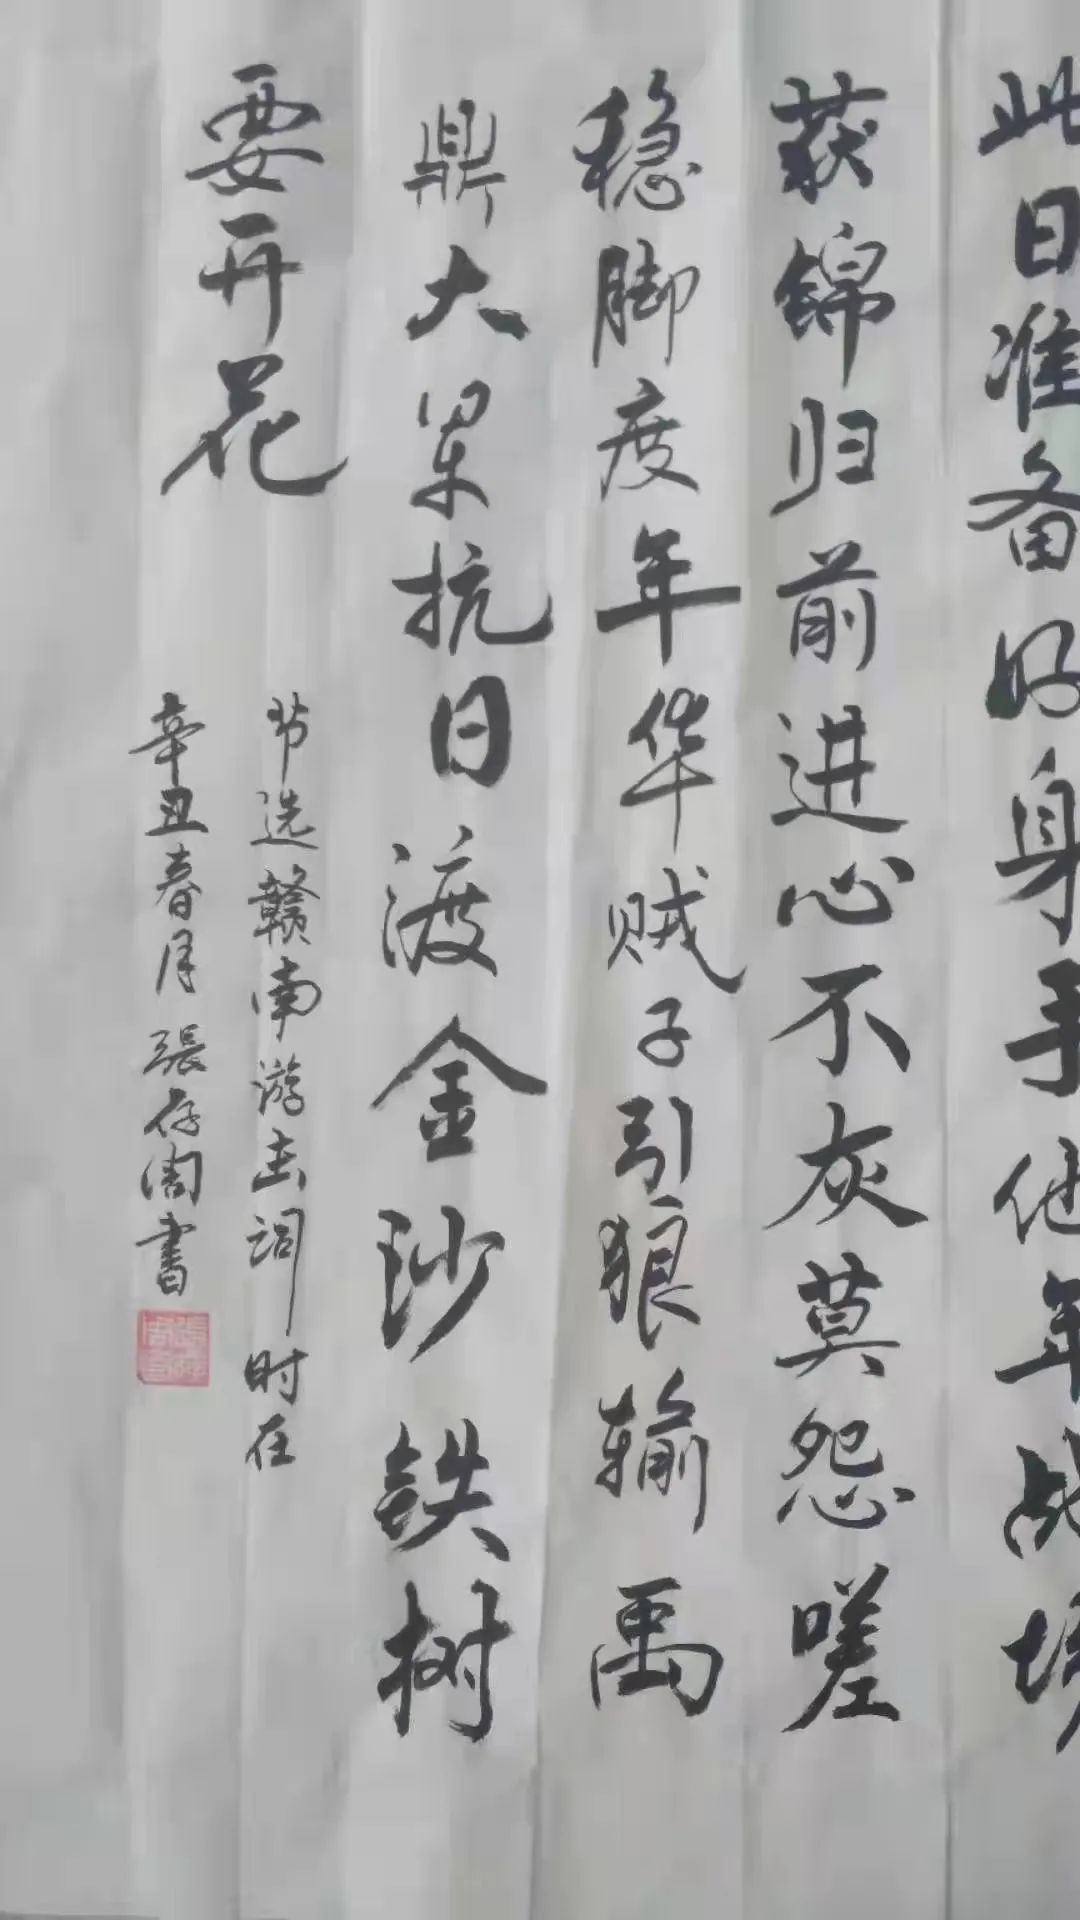 此日准备好身手他年战场
获锦归前进心不灰莫怨嗟
稳脚度年华贼子引狼输禹
鼎大军抗日渡金沙铁树
要开花
节选赣南游击词时在
辛丑春月張存阁書